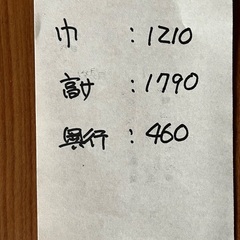 巾 : 1210
高サ : 1790
奥行 : 460